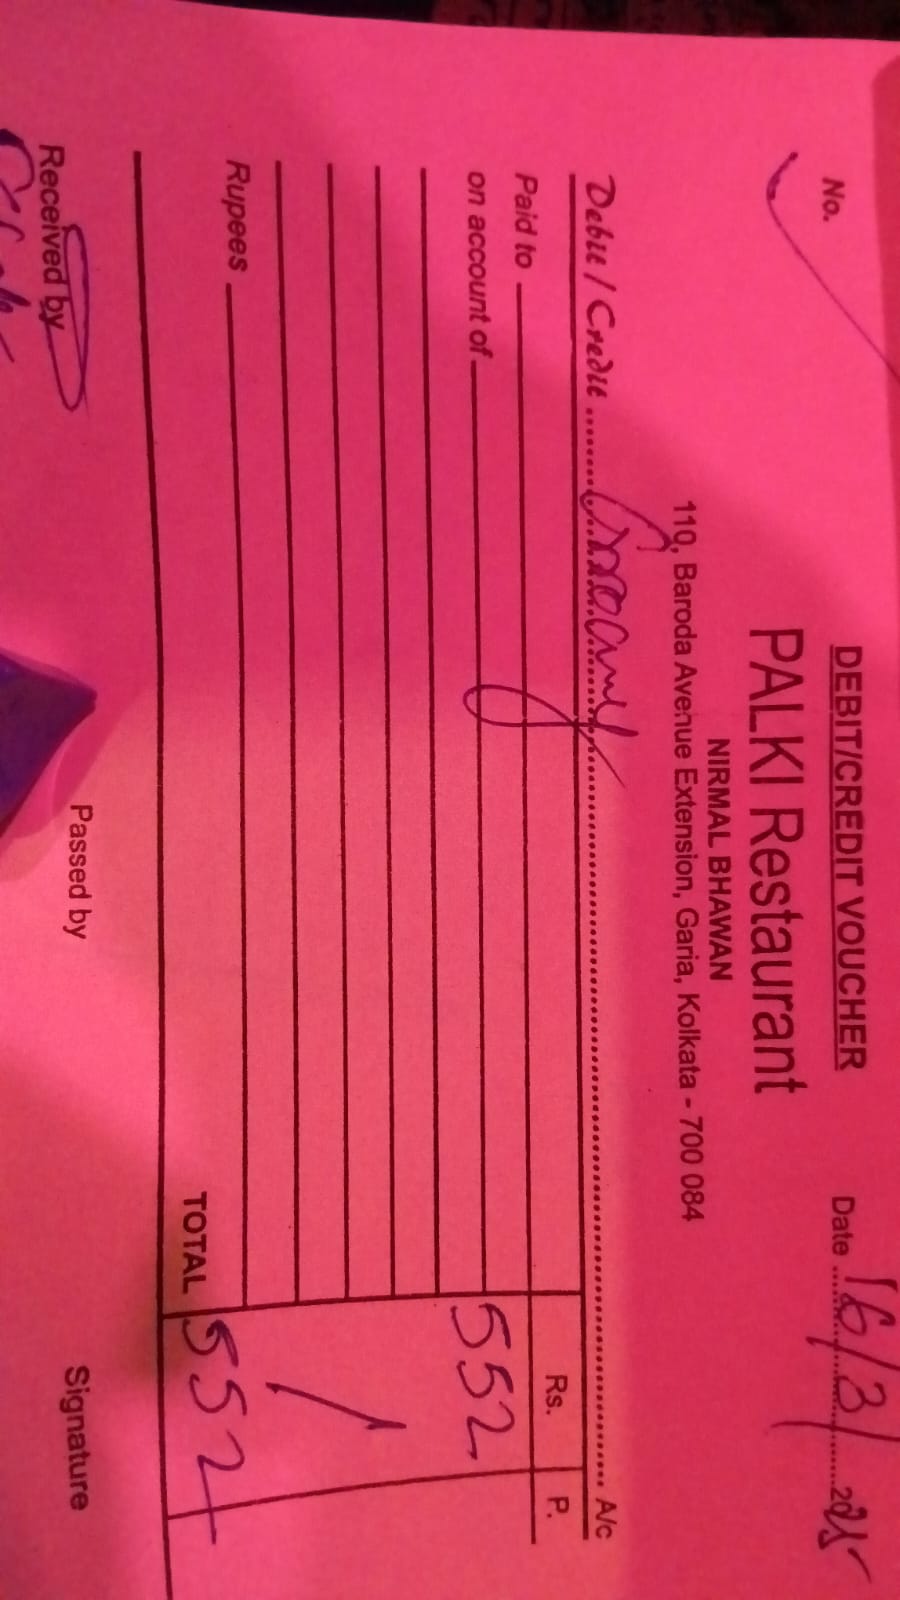 DEBIT/CREDIT VOUCHER
No. Date 16/3/2025
PALKI Restaurant
NIRMAL BHAWAN
110, Baroda Avenue Extension, Garia, Kolkata - 700 084
Debit / Credit ........ Grocery ........ A/c
Rs. P.
Paid to
on account of 552
Rupees
TOTAL 552
Received by Passed by Signature